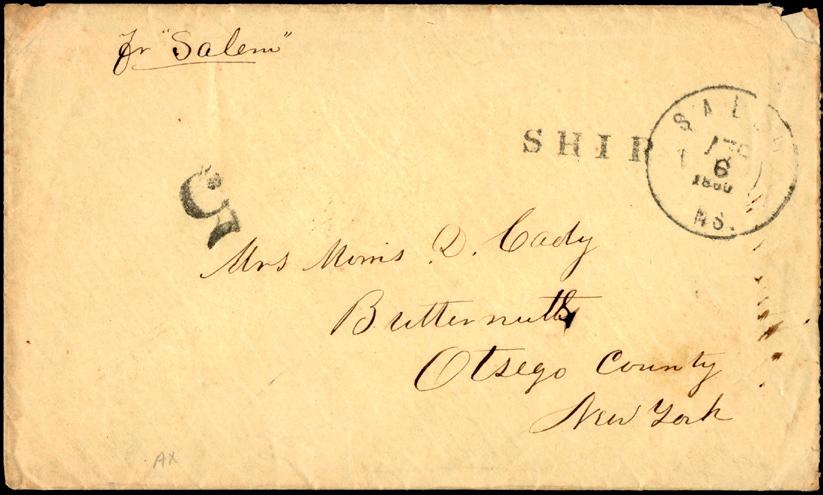 Fr "Salem"
SHIP
SALEM
6
1860
MS.
5
Mrs Morris D. Cady
Butternutts
Otsego County
New York
AX